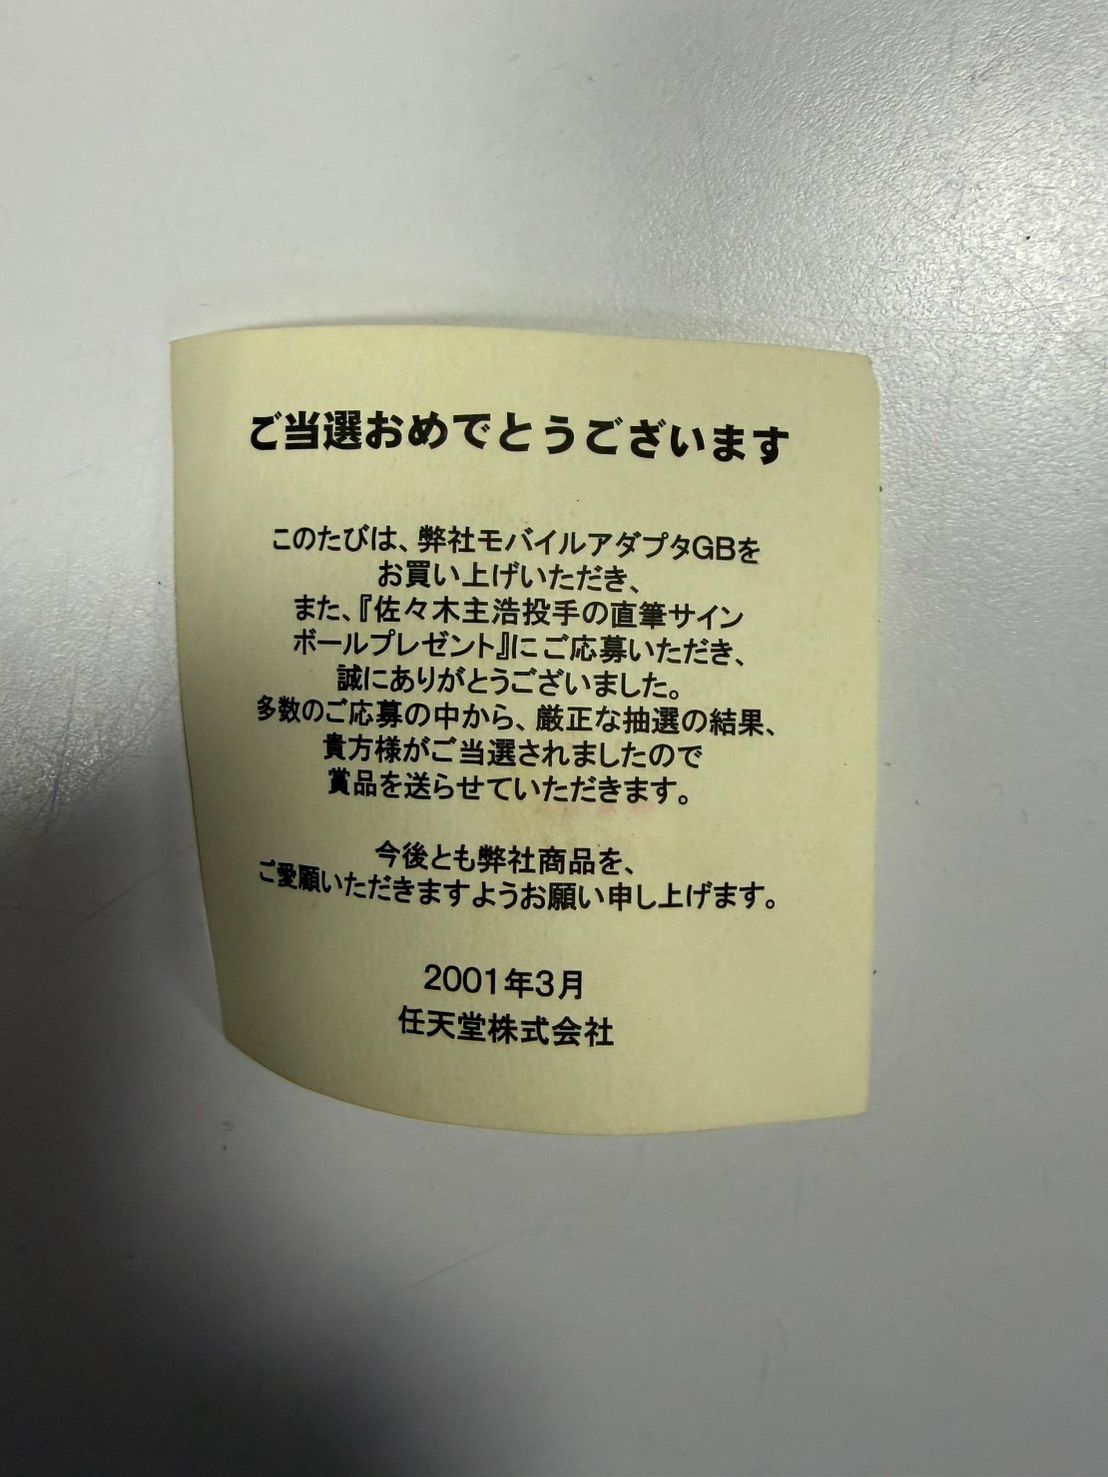 ご当選おめでとうございます
このたびは、弊社モバイルアダプタGBを
お買い上げいただき、
また、『佐々木主浩投手の直筆サイン
ボールプレゼント』にご応募いただき、
誠にありがとうございました。
多数のご応募の中から、厳正な抽選の結果、
貴方様がご当選されましたので
賞品を送らせていただきます。
今後とも弊社商品を、
ご愛顧いただきますようお願い申し上げます。
2001年3月
任天堂株式会社